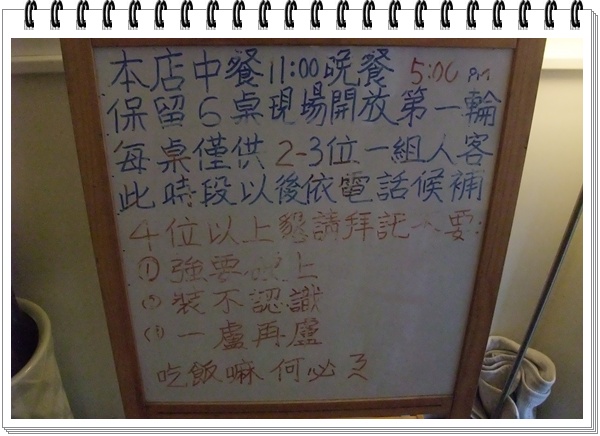 本店中餐11:00晚餐 5:00 PM
保留6桌現場開放第一輪
每桌僅供 2-3位一組人客
此時段以後依電話候補
4位以上懇請拜託不要:
① 強要 上
② 裝不認識
③ 一盧再盧
吃飯嘛 何必ㄋ